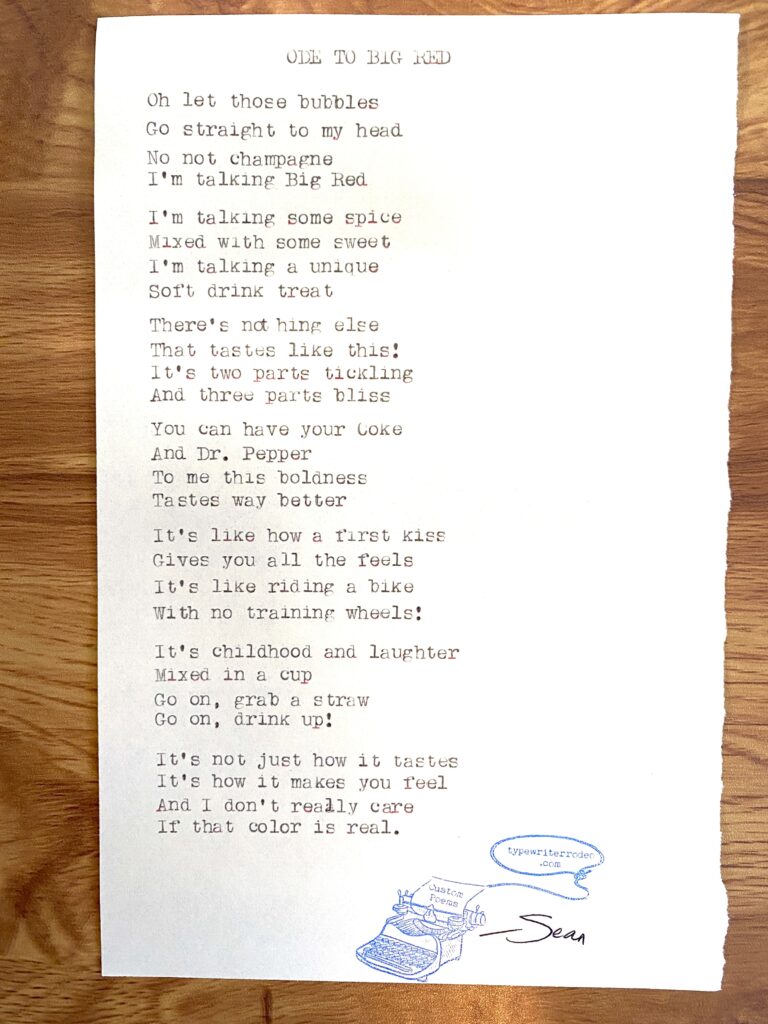 ODE TO BIG RED
Oh let those bubbles
Go straight to my head
No not champagne
I'm talking Big Red
I'm talking some spice
Mixed with some sweet
I'm talking a unique
Soft drink treat
There's not hing else
That tastes like this!
It's two parts tickling
And three parts bliss
You can have your Coke
And Dr. Pepper
To me this boldness
Tastes way better
It's like how a first kiss
Gives you all the feels
It's like riding a bike
With no training wheels!
It's childhood and laughter
Mixed in a cup
Go on, grab a straw
Go on, drink up!
It's not just how it tastes
It's how it makes you feel
And I don't really care
If that color is real.
typewriterrodeo
.com
Custom
Poems
—Sean